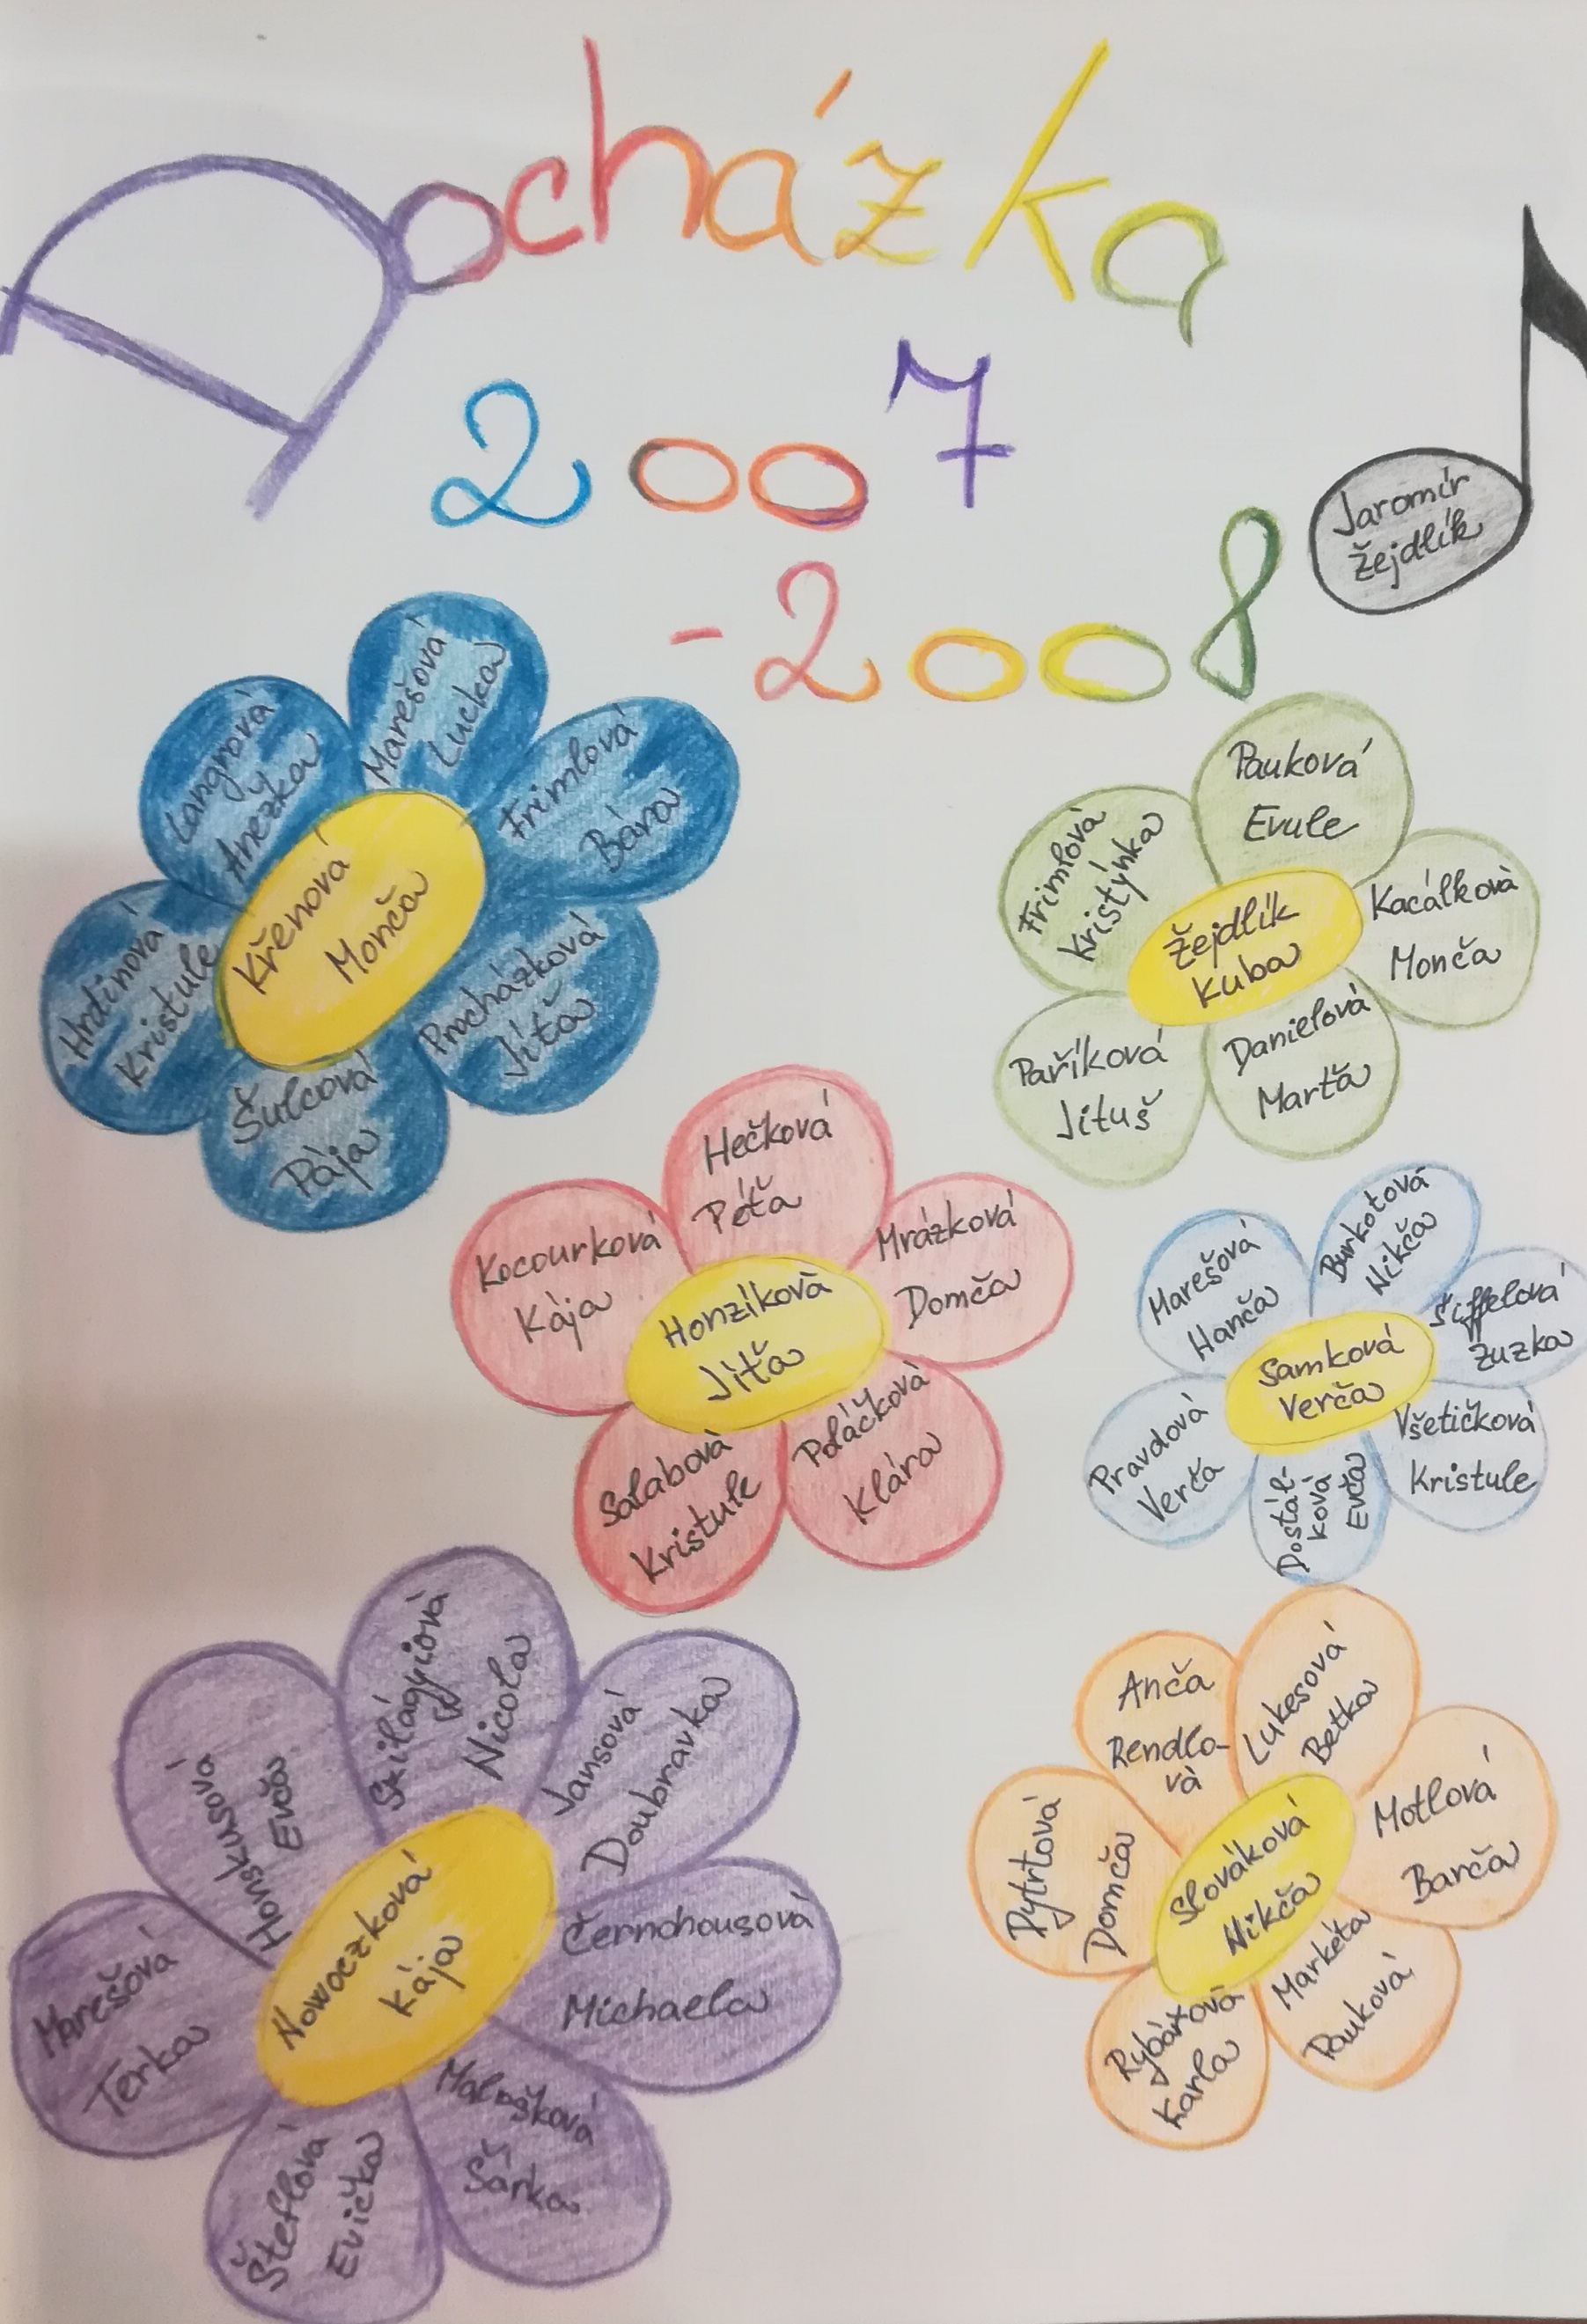 Docházka
2007
-2008
Jaromír
Žejdlík
Langrová
Anežka
Marešová
Lucka
Frimlová
Bára
Procházková
Jíťa
Šulcová
Pája
Hrdinová
Kristule
Křenová
Monča
Frimlová
Kristýnka
Pauková
Evule
Kacálková
Monča
Danielová
Marťa
Paříková
Jituš
Žejdlík
Kuba
Kocourková
Kája
Hečková
Péťa
Mrázková
Domča
Poláčková
Klára
Salabová
Kristule
Honzíková
Jíťa
Marešová
Hanča
Burkotová
Nikča
Šiffelová
Zuzka
Všetičková
Kristule
Dostál-
ková
Evča
Pravdová
Verča
Samková
Verča
Honskusová
Evča
Nicola
Jansová
Doubravka
Černohousová
Michaela
Šárka
Šteflová
Evička
Marešová
Terka
Nowoczková
Kája
Anča
Rendlo-
vá
Lukesová
Betka
Motlová
Barča
Markéta
Pauková
Rybářová
Karla
Pytrtová
Domča
Slováková
Nikča